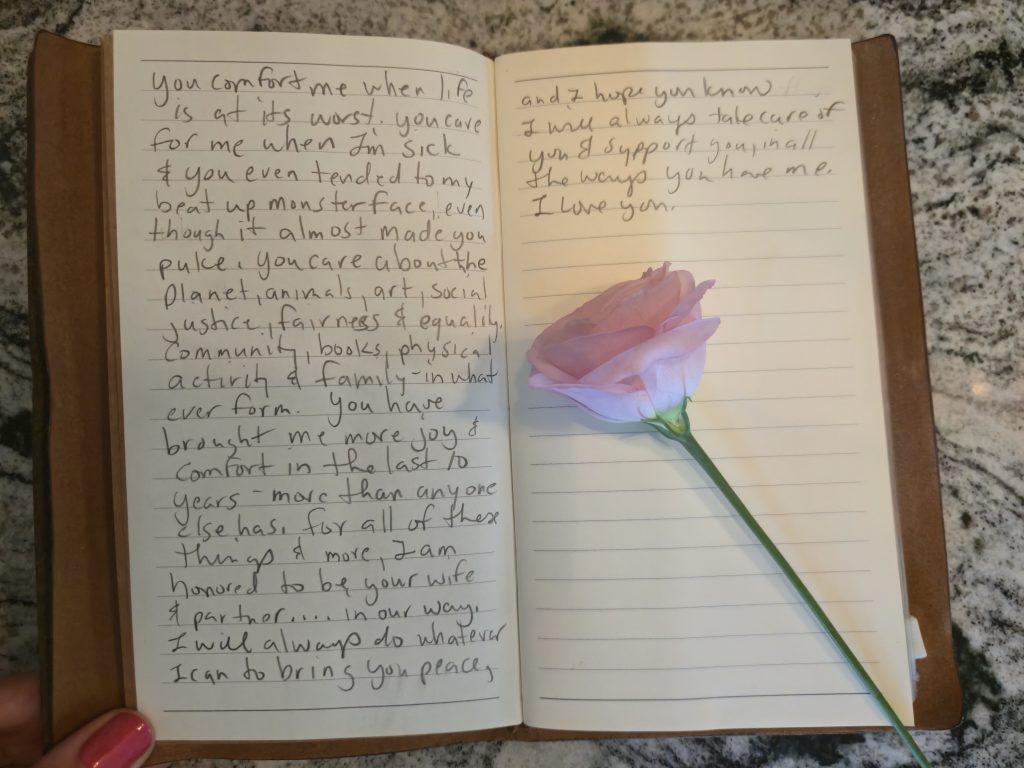 you comfort me when life
is at its worst. you care
for me when I'm sick
& you even tended to my
beat up monster face, even
though it almost made you
puke. You care about the
planet, animals, art, social
justice, fairness & equality,
community, books, physical
activity & family - in what
ever form. You have
brought me more joy &
comfort in the last 10
years - more than anyone
else has. for all of these
things & more, I am
honored to be your wife
& partner.... in our way.
I will always do whatever
I can to bring you peace,
and I hope you know
I will always take care of
you & support you, in all
the ways you have me.
I love you.